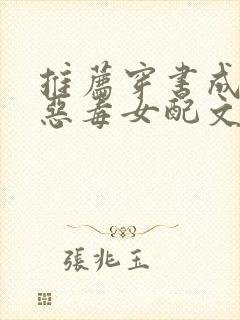 推薦穿書成
惡毒女配文
張兆玉